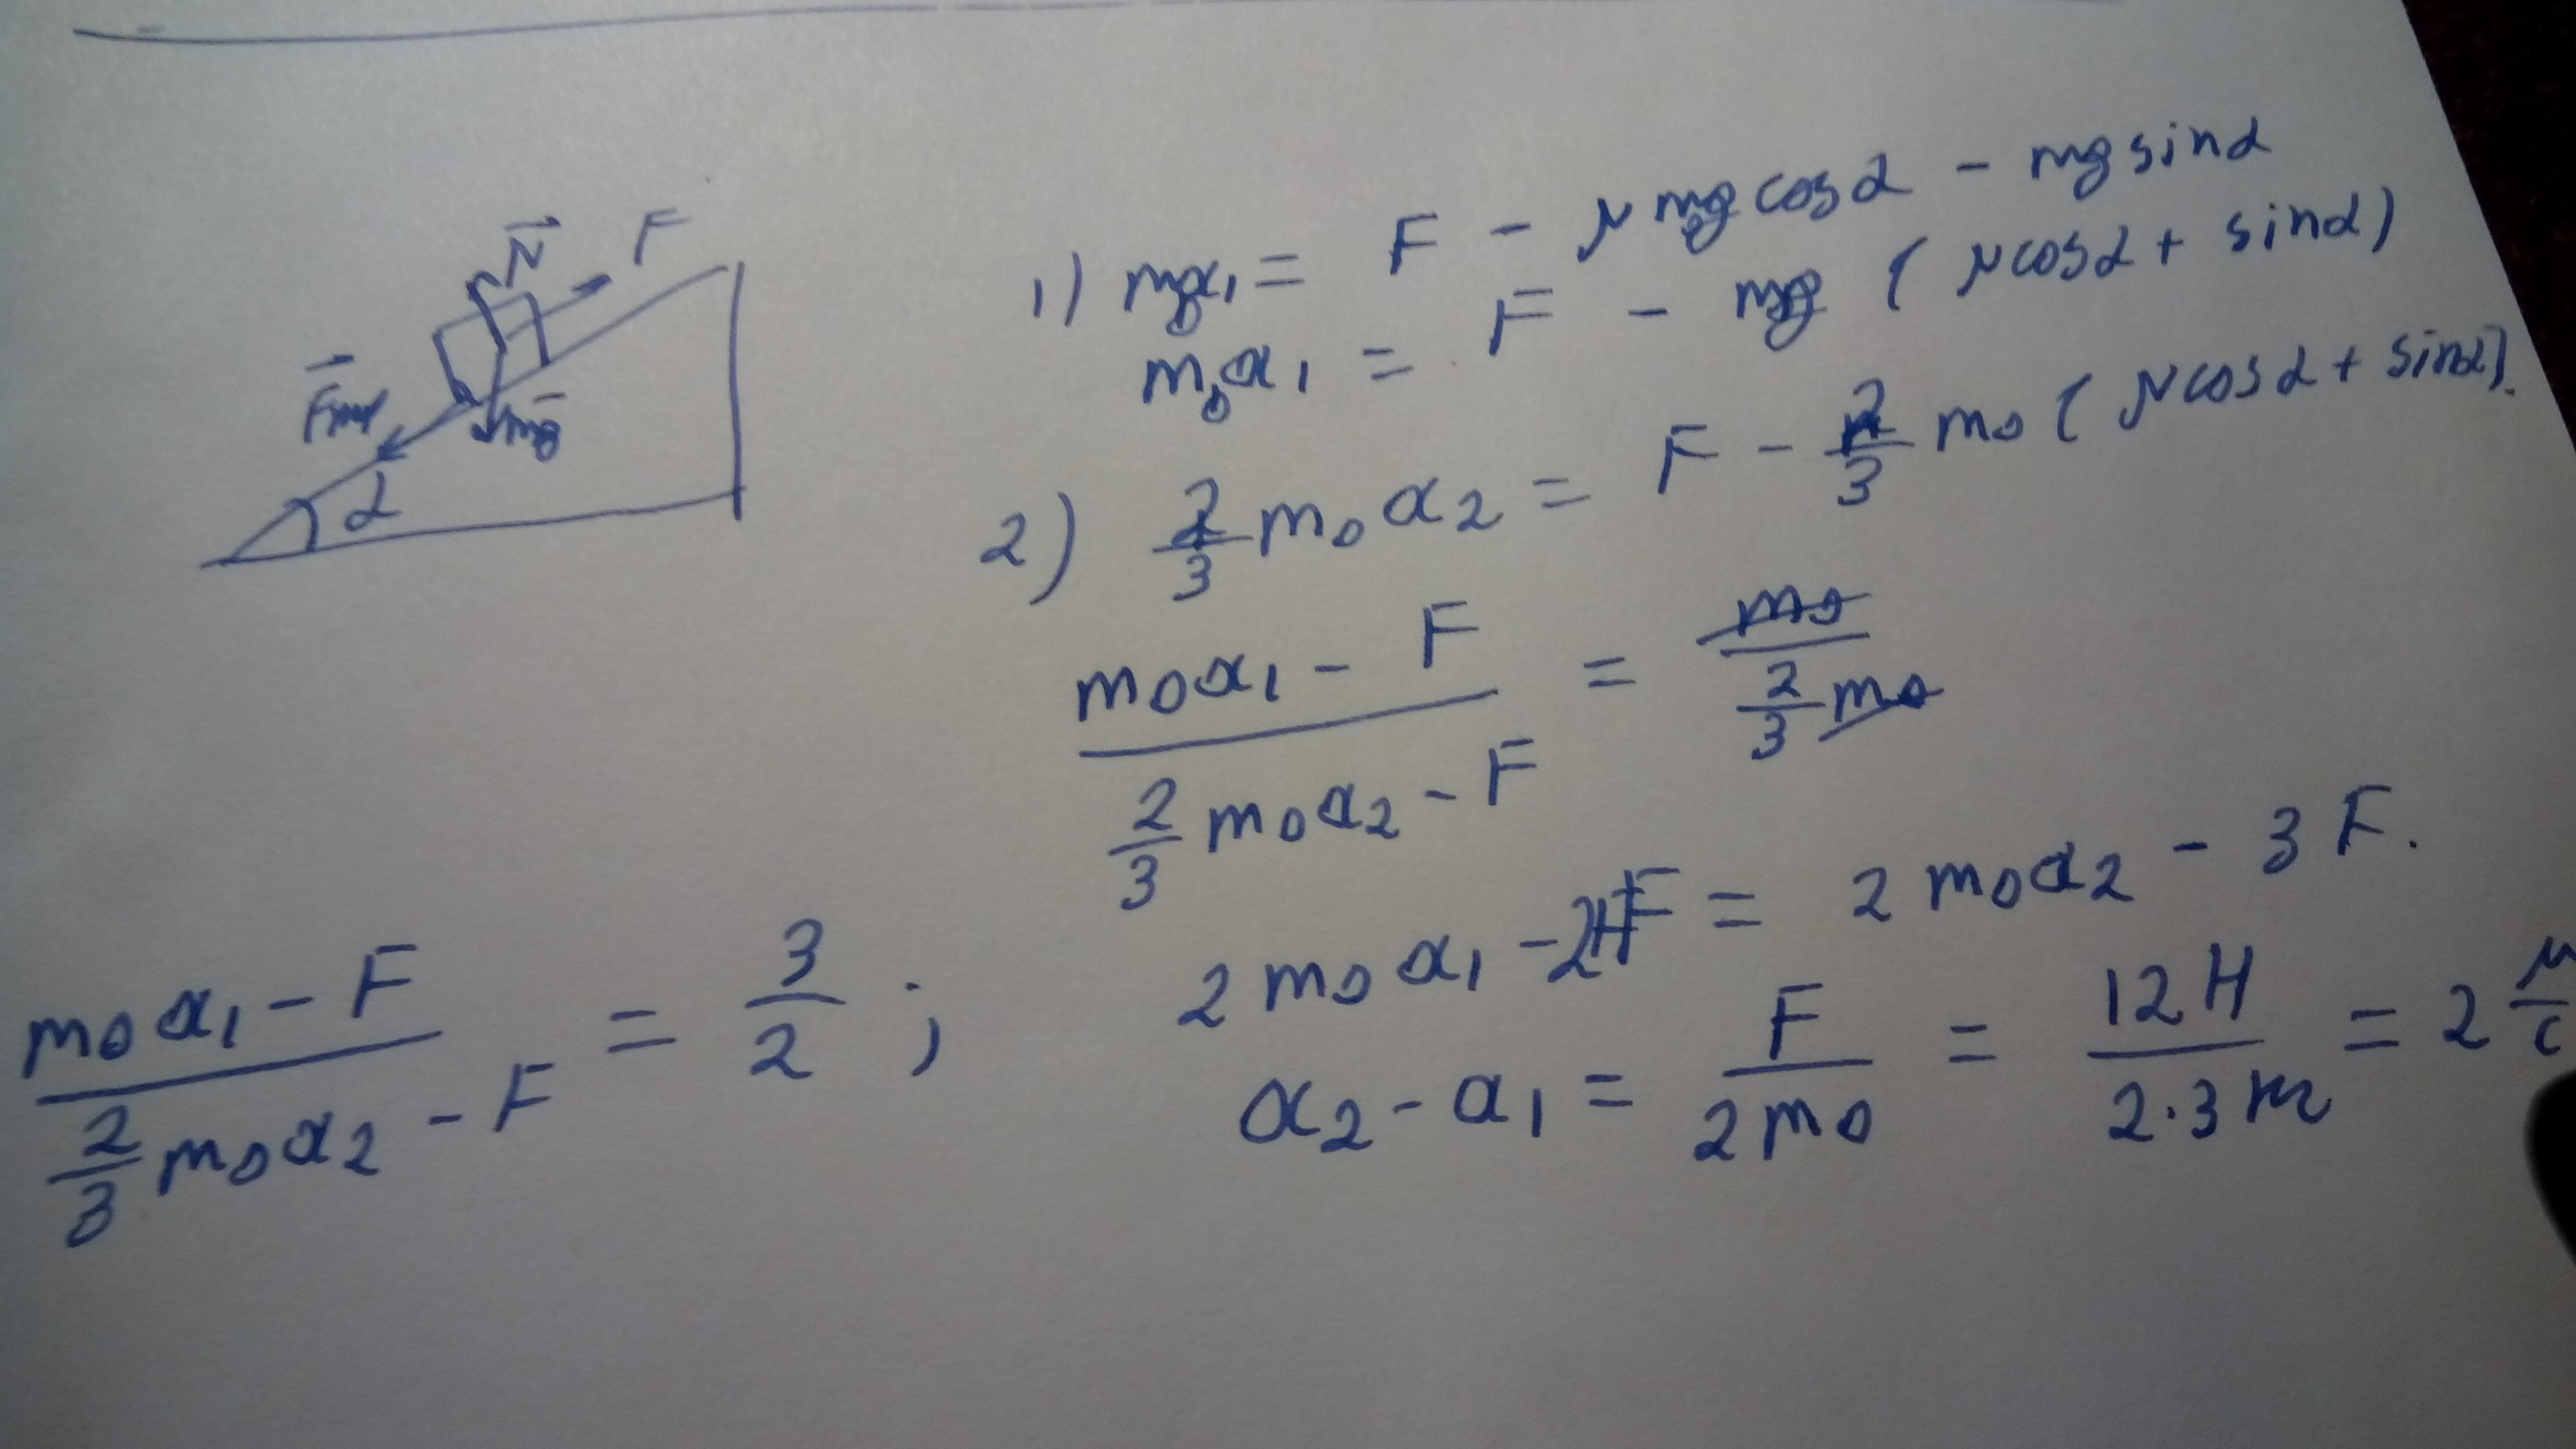 N F
Fтр mg
α
1) m₀a₁ = F - μmg cosα - mg sinα
m₀a₁ = F - mg (μcosα + sinα)
2) 2/3 m₀a₂ = F - 2/3 m₀ (μcosα + sinα).
(m₀a₁ - F) / (2/3 m₀a₂ - F) = m₀ / (2/3 m₀)
2m₀a₁ - 2F = 2m₀a₂ - 3F.
(m₀a₁ - F) / (2/3 m₀a₂ - F) = 3/2 ;
a₂ - a₁ = F / 2m₀ = 12Н / 2·3кг = 2 м/с